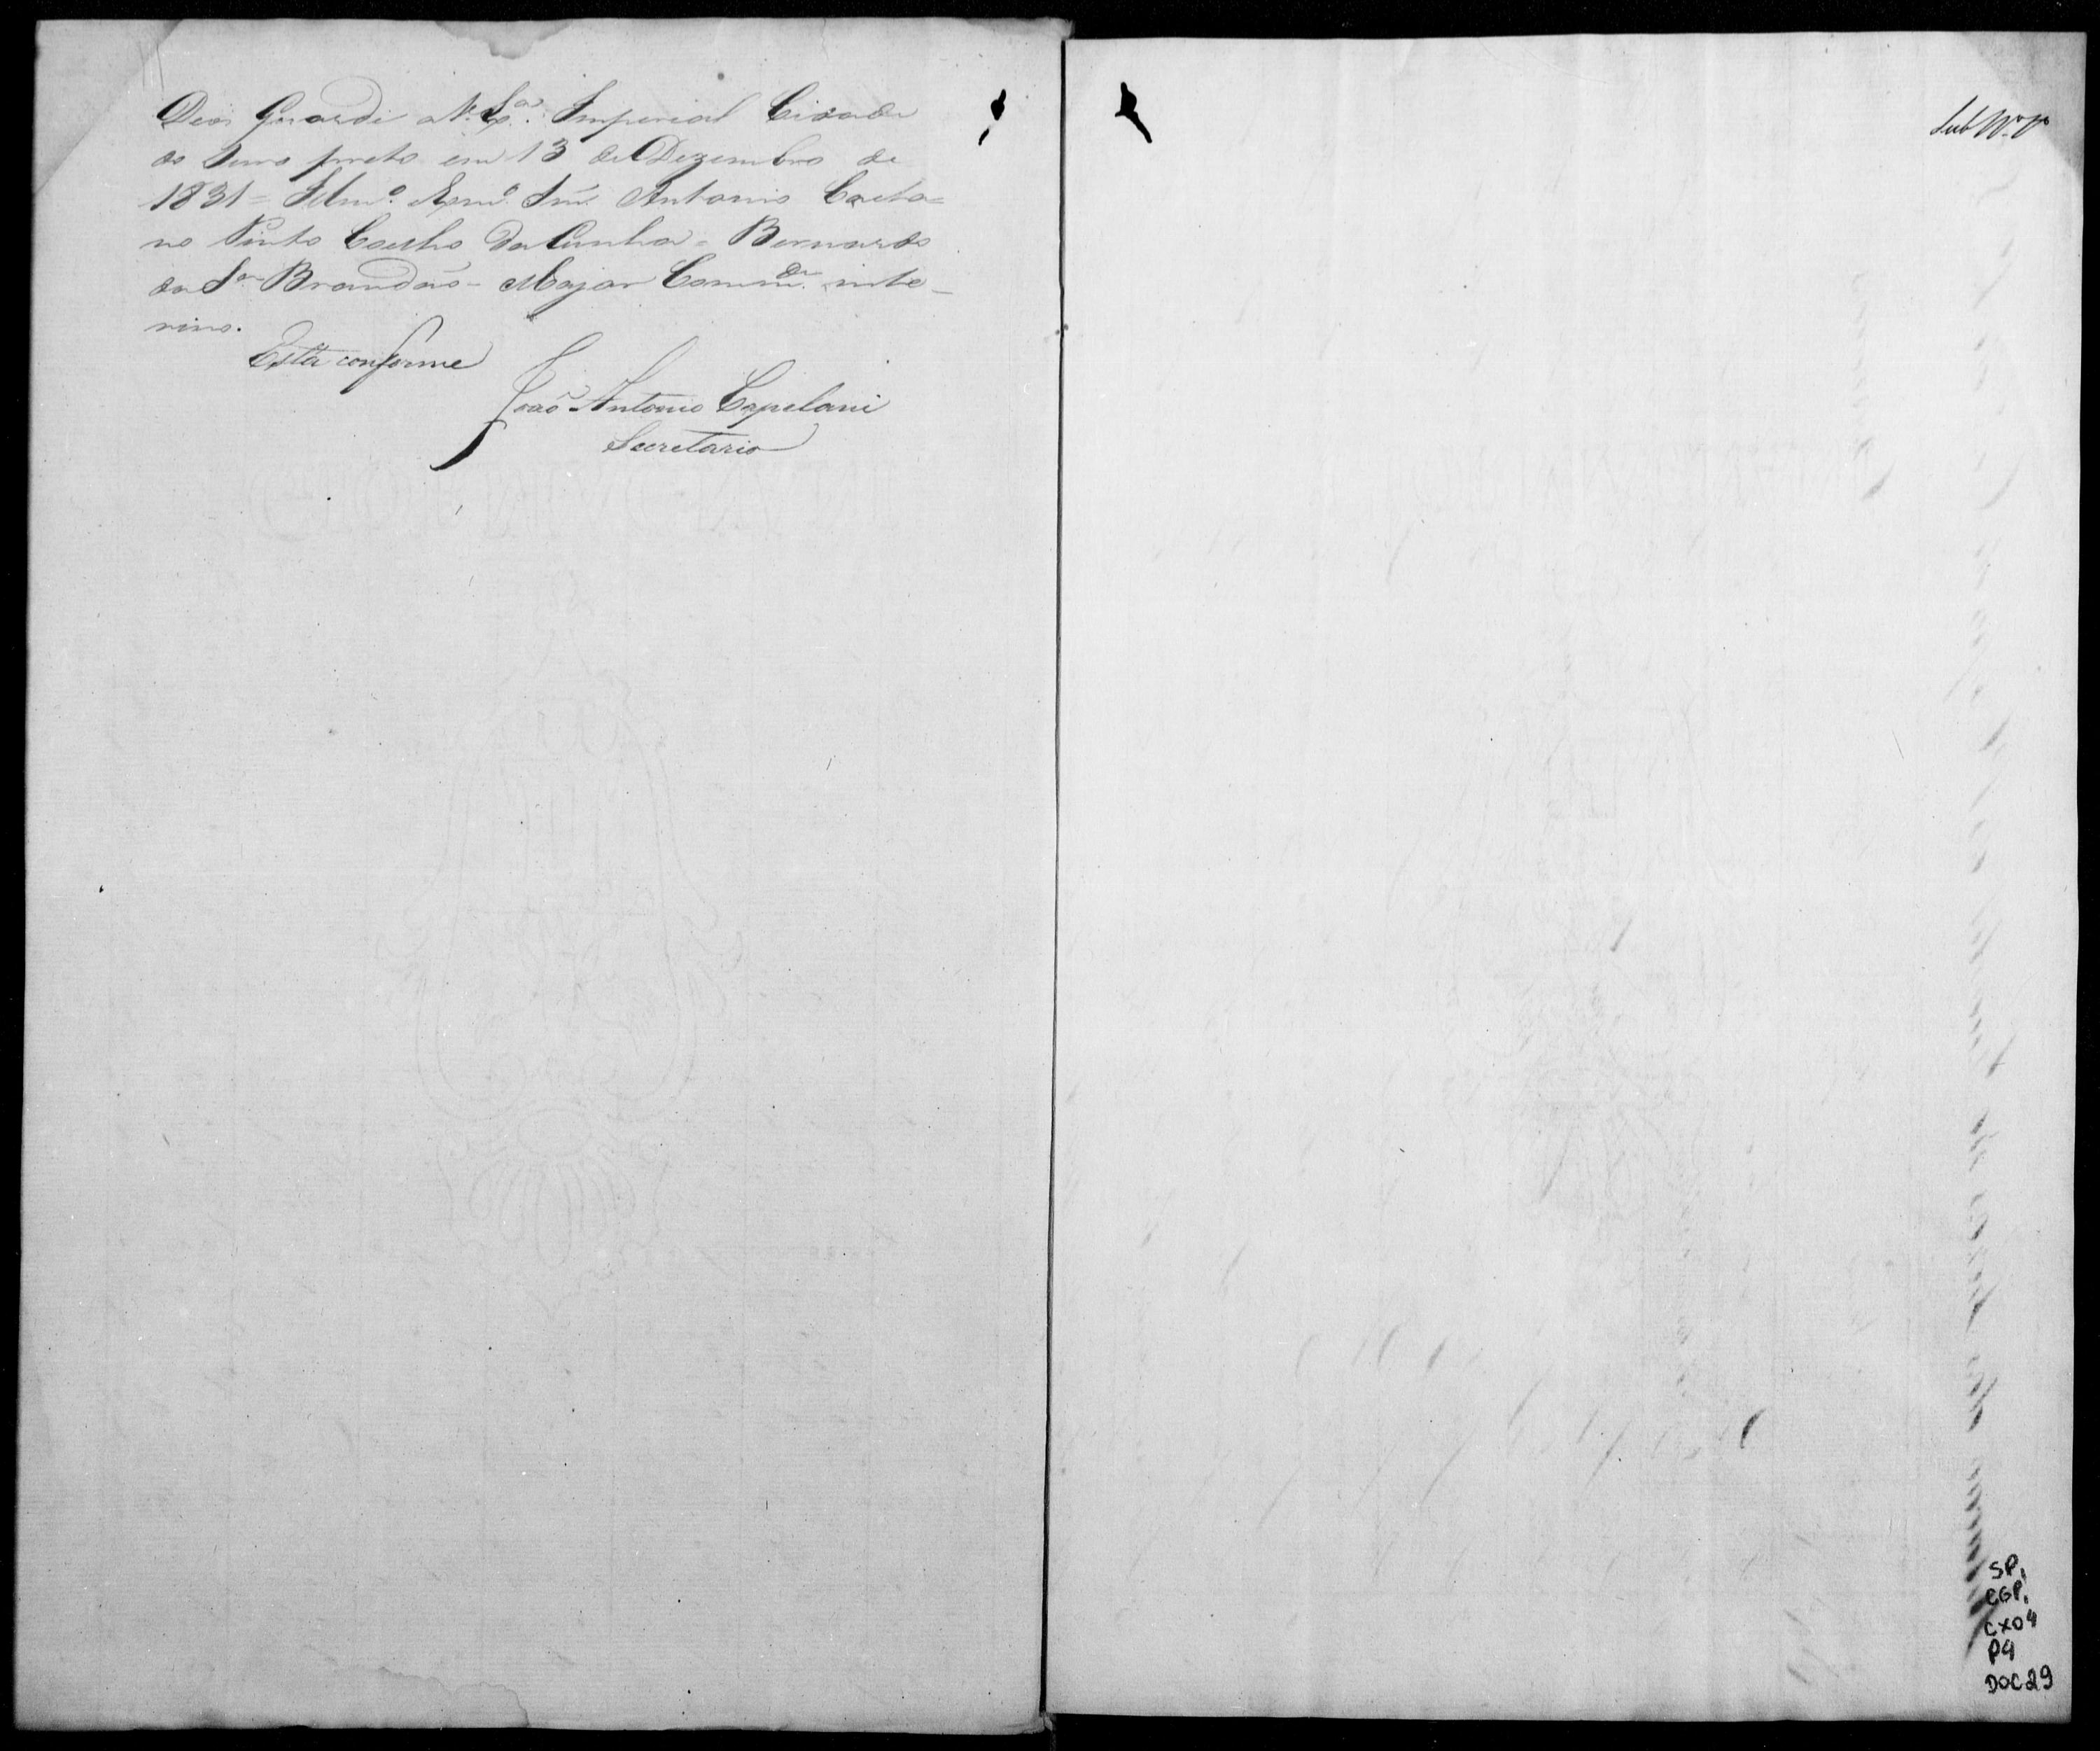 Deos Guarde a V. Sa. Imperial Cidade
do Ouro preto em 13 de Dezembro de
1831 = Illmo. Exmo. Snr. Antonio Caeta=
no Pinto Coelho da Cunha = Bernardo
da Sa. Brandão - Major Commde. inte_
rino.
Está conforme
João Antonio Capelani
Secretario
SP1
CGP1
CX04
P4
DOC29